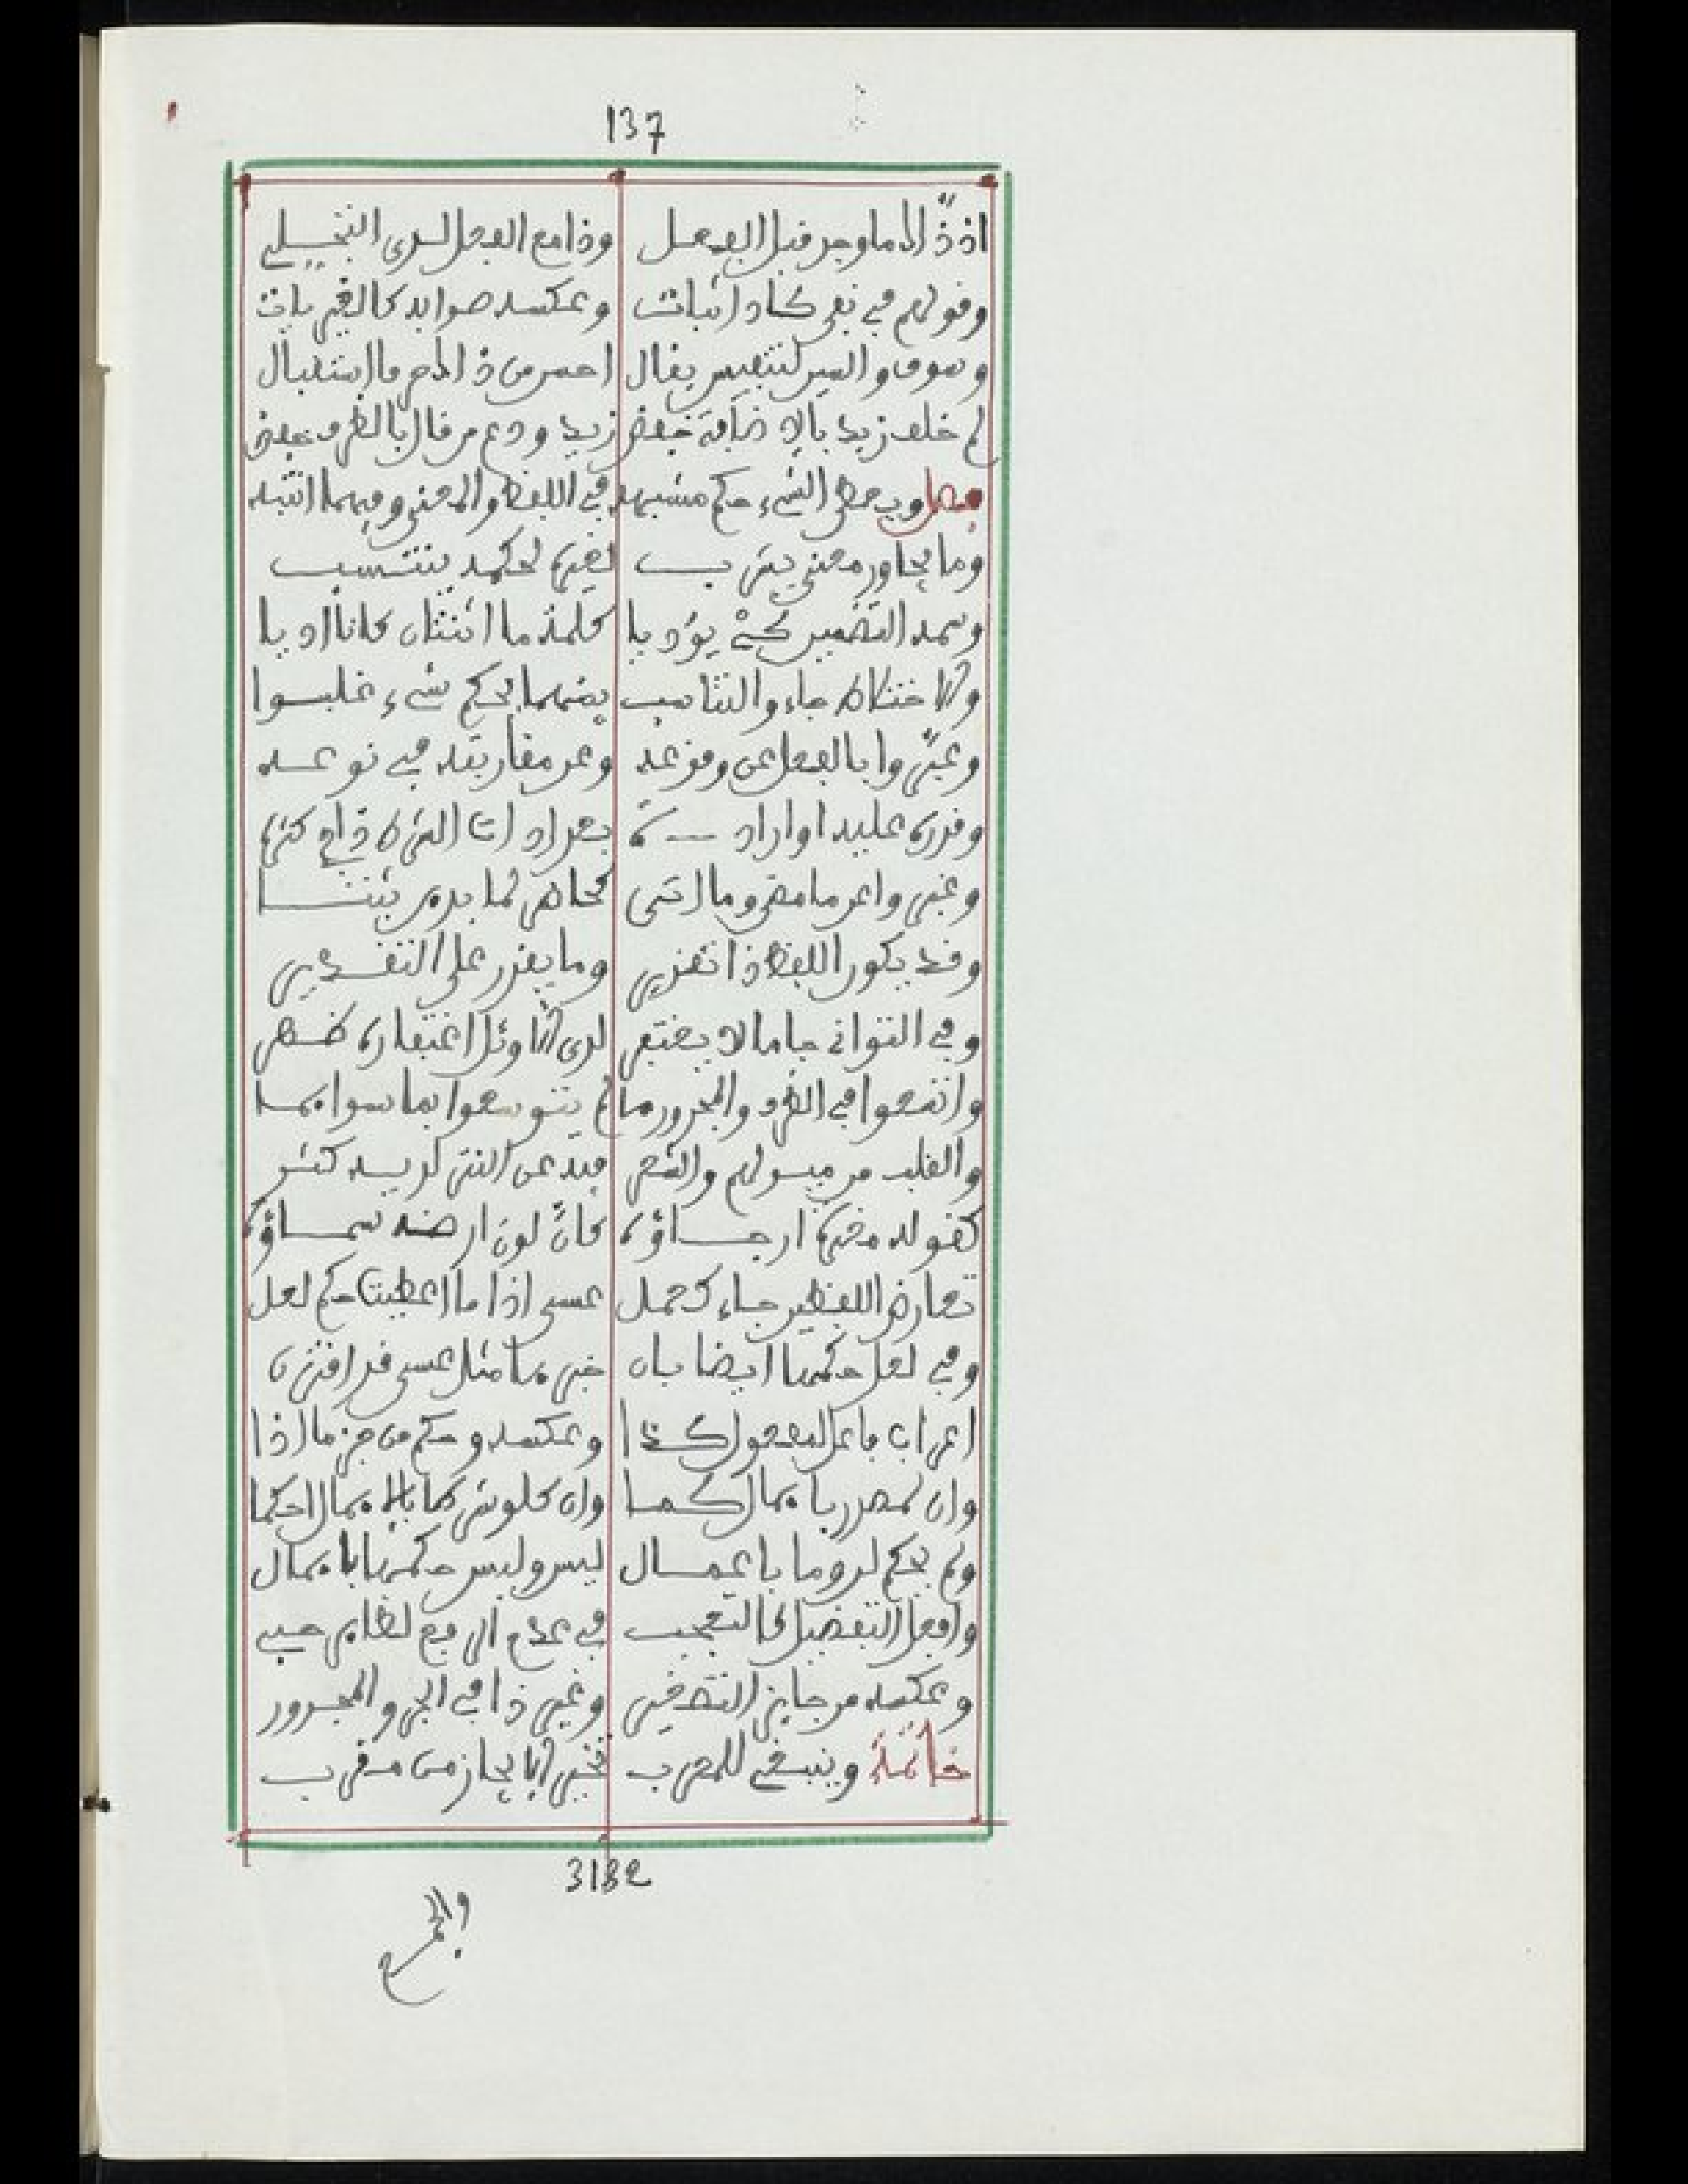 137
اذ ذاك ما وجد قبل الفعل وذا مع الفعل لدى التجلي
وقولهم في نفي كاد اثبات وعكسه صوابه كالغير يات
وسوف والسين لتنفيس يقال احسن من ذا لام ما استقبال
لم خلف زيد بالاضافة خفض زيد ودع من قال بالظرف خفض
فصل ويعطى الشيء حكم مشبهه في اللفظ والمعنى وفيهما انتبه
وما يجاور معنى يقرب لغيره لحكمه ينتسب
وسمه التضمين كي يؤديا كلمة ما اثنتان كانا اديا
والاختلاط جاء والتناسب بينهما بحكم شيء غلبوا
وعبروا بالفعل عن وقوعه وعن مقاربته في نوعه
وقدره عليه او اراده بعد اداة الشرط ذا في كثره
وعبروا عن ما مضى وما اتى كحاضر لما بدهن يثبتا
وقد يكون اللفظ ذا تقدير وما يقدر على التقدير
وفي الثواني جا ما لا يغتفر لدى الاوائل اغتفاره ظهر
واتسعوا في الظرف والمجرور ما لم يتوسعوا بما سواهما
والقلب من قولهم والشعر فيه عن النثر لديه كثر
كقوله مغبرة ارجاؤه كأن لون ارضه سماؤه
تعارض اللفظين جاء كحمل عسى اذا ما اعطيت حكم لعل
وفي لعل حكمها ايضا بان خبرها مثل عسى قد اقترن
اعراب فاعل لمفعول كذا وعكسه وحكم من جزما اذا
وان لمصدر باهمال كما وان كلو بثم كما بالاهمال احكما
ولم بحكم لن وما باعمال ليس وليس حكمها باهمال
وافعل التفضيل كالتعجب في عدم الرفع لظاهر حبي
وعكسه من جايز التصغير وغير ذا في الجر والمجرور
خاتمة وينبغي للمعرب تخير الايجاز من معرب
3182
والجمع